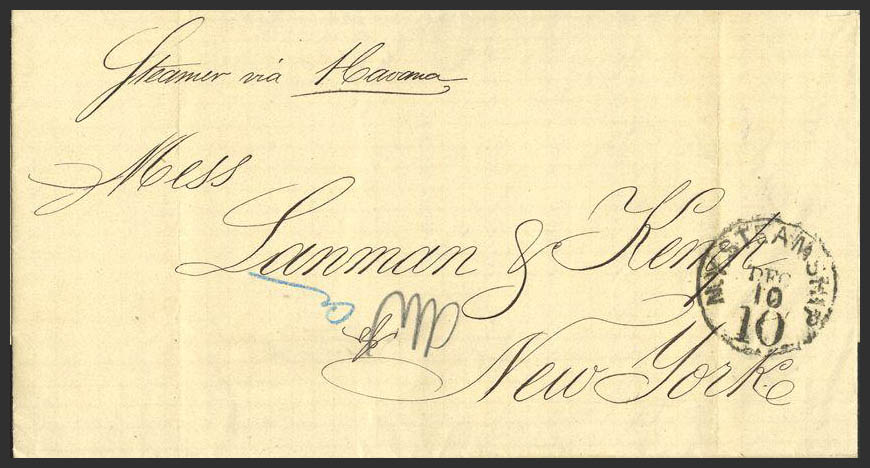 Steamer via Havana
Mess
Lanman & Kemp
N.Y. STEAMSHIP
DEC
10
10
New York